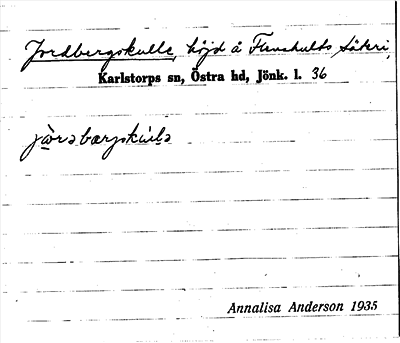 Jordbergskulle, höjd å Flunshults säteri,
Karlstorps sn, Östra hd, Jönk. l. 36
Annalisa Anderson 1935